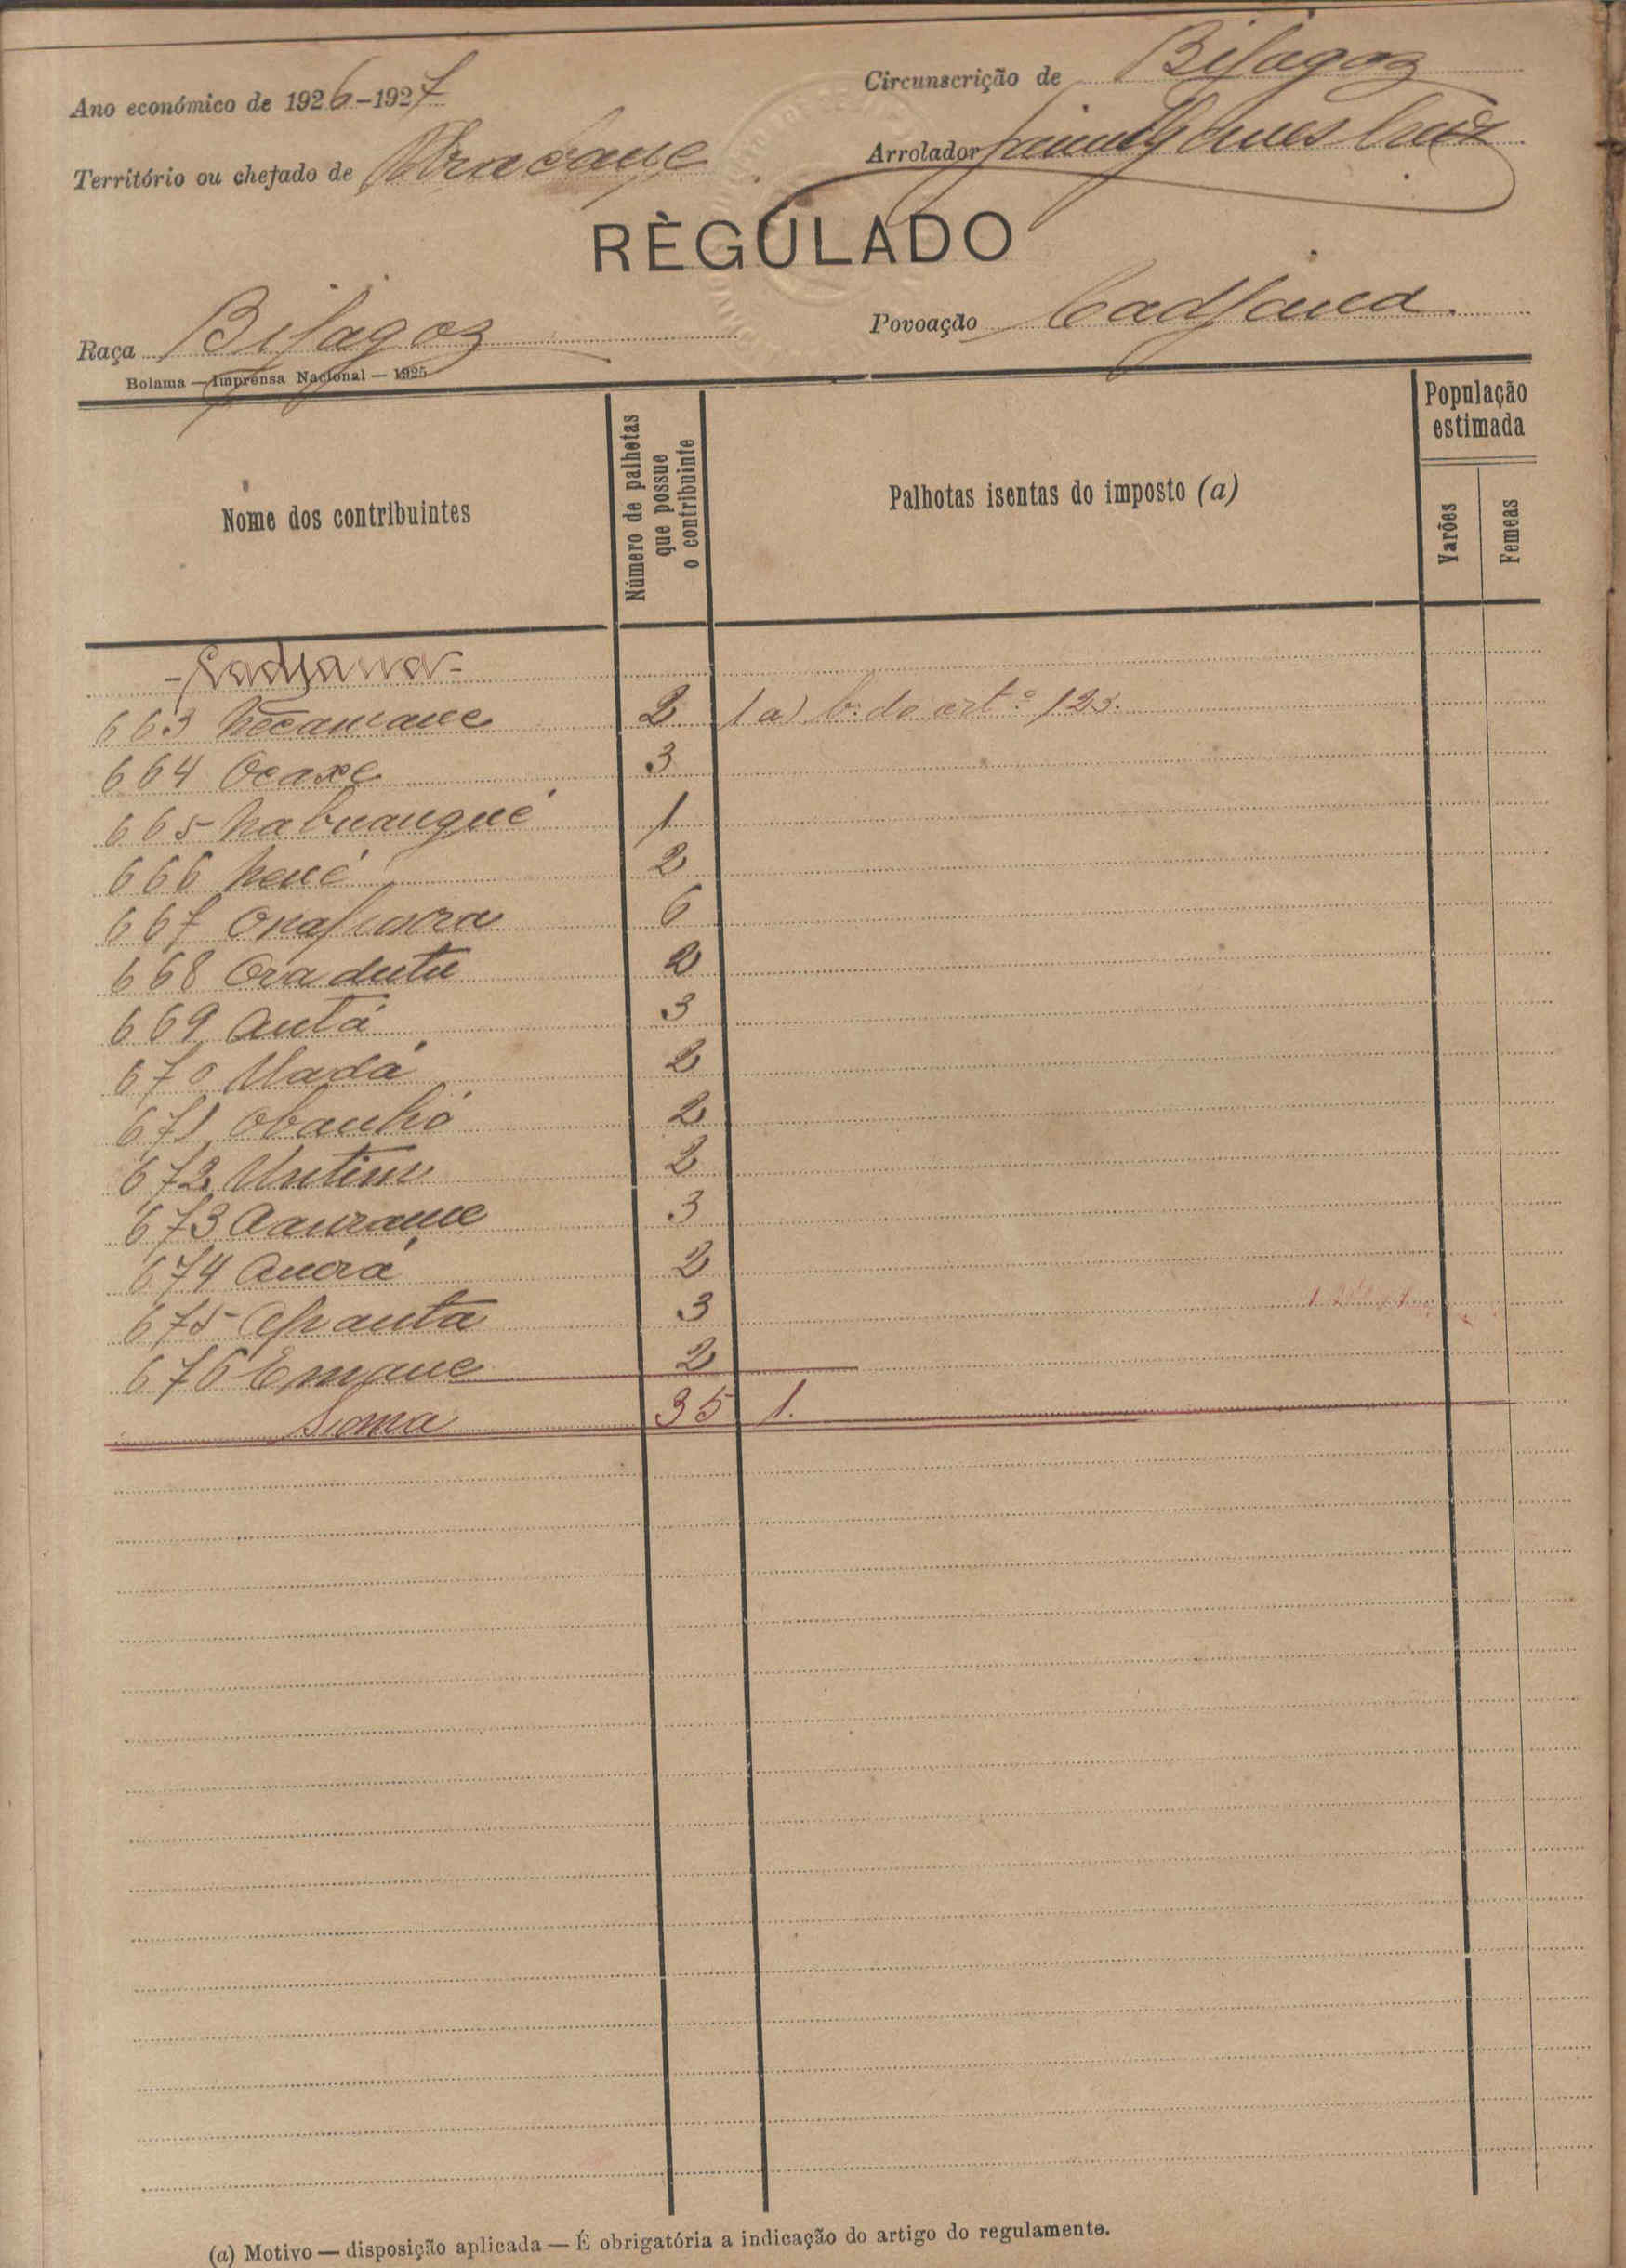 Ano económico de 1926-1927
Circunscrição de Bijagoz
Território ou chefado de
Arrolador
RÈGULADO
Raça Bijagoz
Povoação Cadjana
Bolama — Imprensa Nacional — 1925
Nome dos contribuintes
Número de palhotas que possue o contribuinte
Palhotas isentas do imposto (a)
População estimada
Varões
Femeas
- Cadjana -
663 2 1 a) b. do artº 123.
664 Ocaxe 3
665 Nabuangué 1
666 Nené 2
667 6
668 Oradutu 2
669 Antá 3
670 Madá 2
671 Obanhó 2
672 2
673 3
674 2
675 3
676 Emane 2
Soma 35 1.
(a) Motivo — disposição aplicada — É obrigatória a indicação do artigo do regulamento.